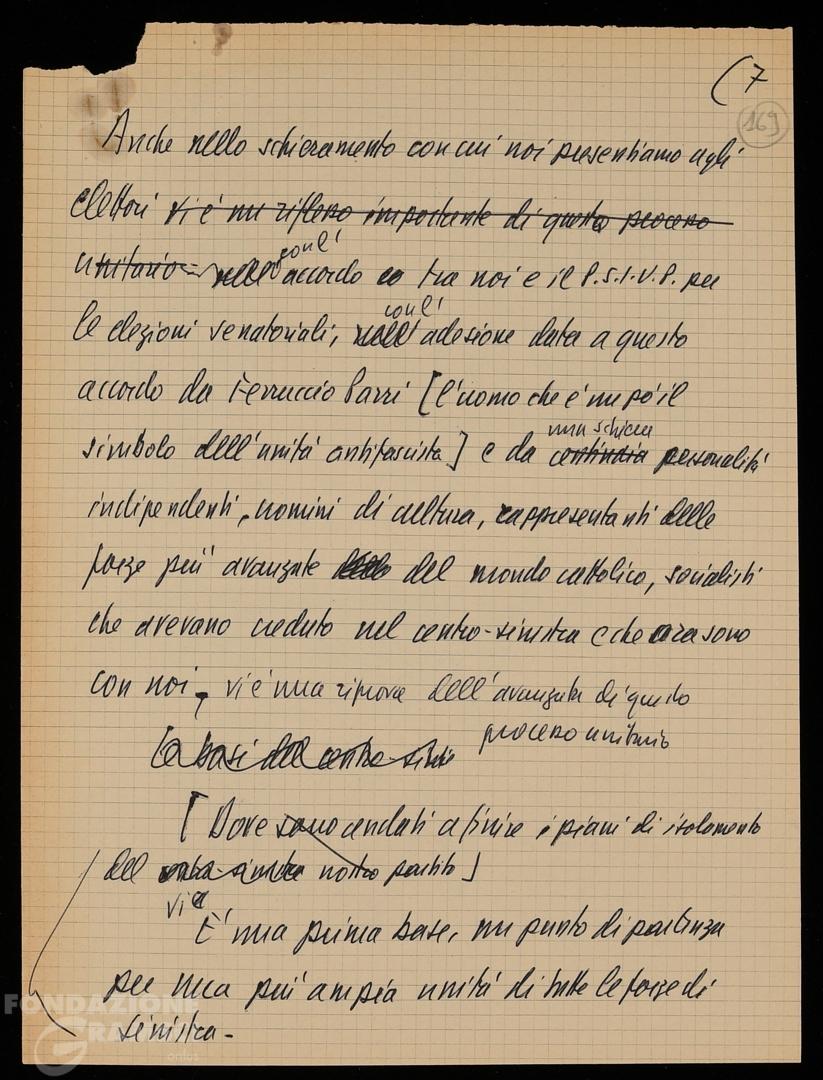 (7
169
Anche nello schieramento con cui noi presentiamo agli
elettori vi è un riflesso importante di questo processo
unitario nell'accordo tra noi e il P.S.I.U.P. per
con l'
le elezioni senatoriali, nell'adesione data a questo
con l'
accordo da Ferruccio Parri [l'uomo che è un po' il
simbolo dell'unità antifascista] e da centinaia personalità
una schiera
indipendenti, uomini di cultura, rappresentanti delle
forze più avanzate del mondo cattolico, socialisti
che avevano creduto nel centro-sinistra e che ora sono
con noi, vi è una riprova dell'avanzata di questo
processo unitario
Le basi del centro-sinistra
[Dove sono andati a finire i piani di isolamento
del centro-sinistra nostro partito]
Vi è
È una prima base, un punto di partenza
per una più ampia unità di tutte le forze di
sinistra -
FONDAZIONE
GRAMSCI
onlus